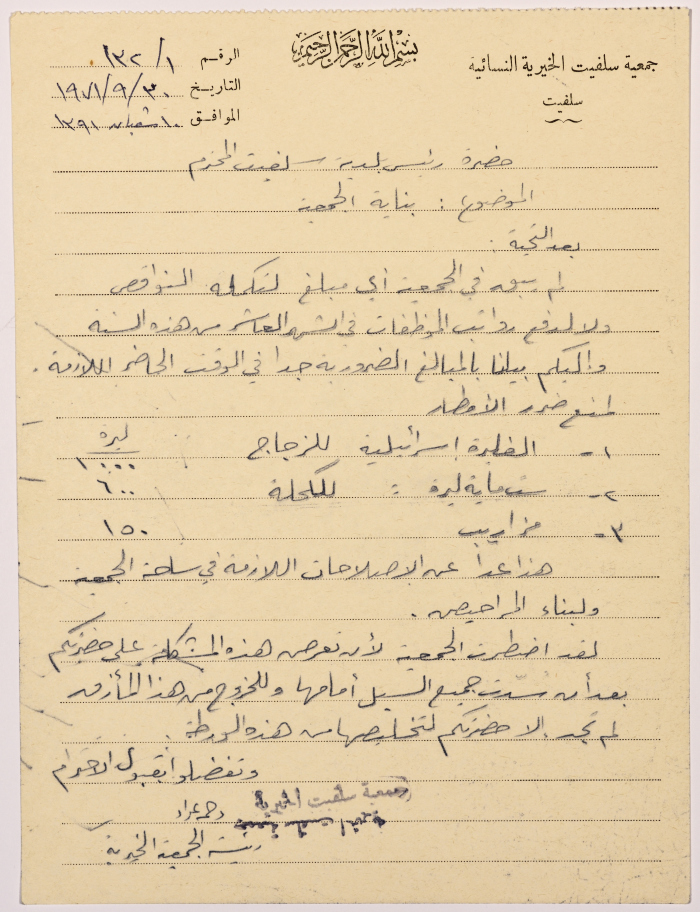 بسم الله الرحمن الرحيم
جمعية سلفيت الخيرية النسائية
سلفيت
الرقم ١٣٢/١
التاريخ ١٩٧١/٩/٣٠
الموافق ١٠ شعبان ١٣٩١
حضرة رئيس بلدية سلفيت المحترم
الموضوع : بناية الجمعية
بعد التحية :
لم يبق في الجمعية أي مبلغ لتكملة النواقص
ولا لدفع رواتب الموظفات في الشهر العاشر من هذه السنة
واليكم بيانا بالمبالغ الضرورية جدا في الوقت الحاضر اللازمة .
لمنع ضرر الأمطار
ليرة
١- الف ليرة إسرائيلية للزجاج ١٠٠٠
٢- ستماية ليرة : للكحلة ٦٠٠
٣- مزاريب ١٥٠
هذا عدا عن الاصلاحات اللازمة في ساحة الجمعية
ولبناء المراحيض .
لقد اضطرت الجمعية لأن تعرض هذه المشكلة على حضرتكم
بعد أن سدّت جميع السبل أمامها وللخروج من هذا المأزق
لم تجد إلا حضرتكم لتخليصها من هذه الورطة .
وتفضلوا بقبول الاحترام
جمعية سلفيت الخيرية
رئيسة الجمعية الخيرية